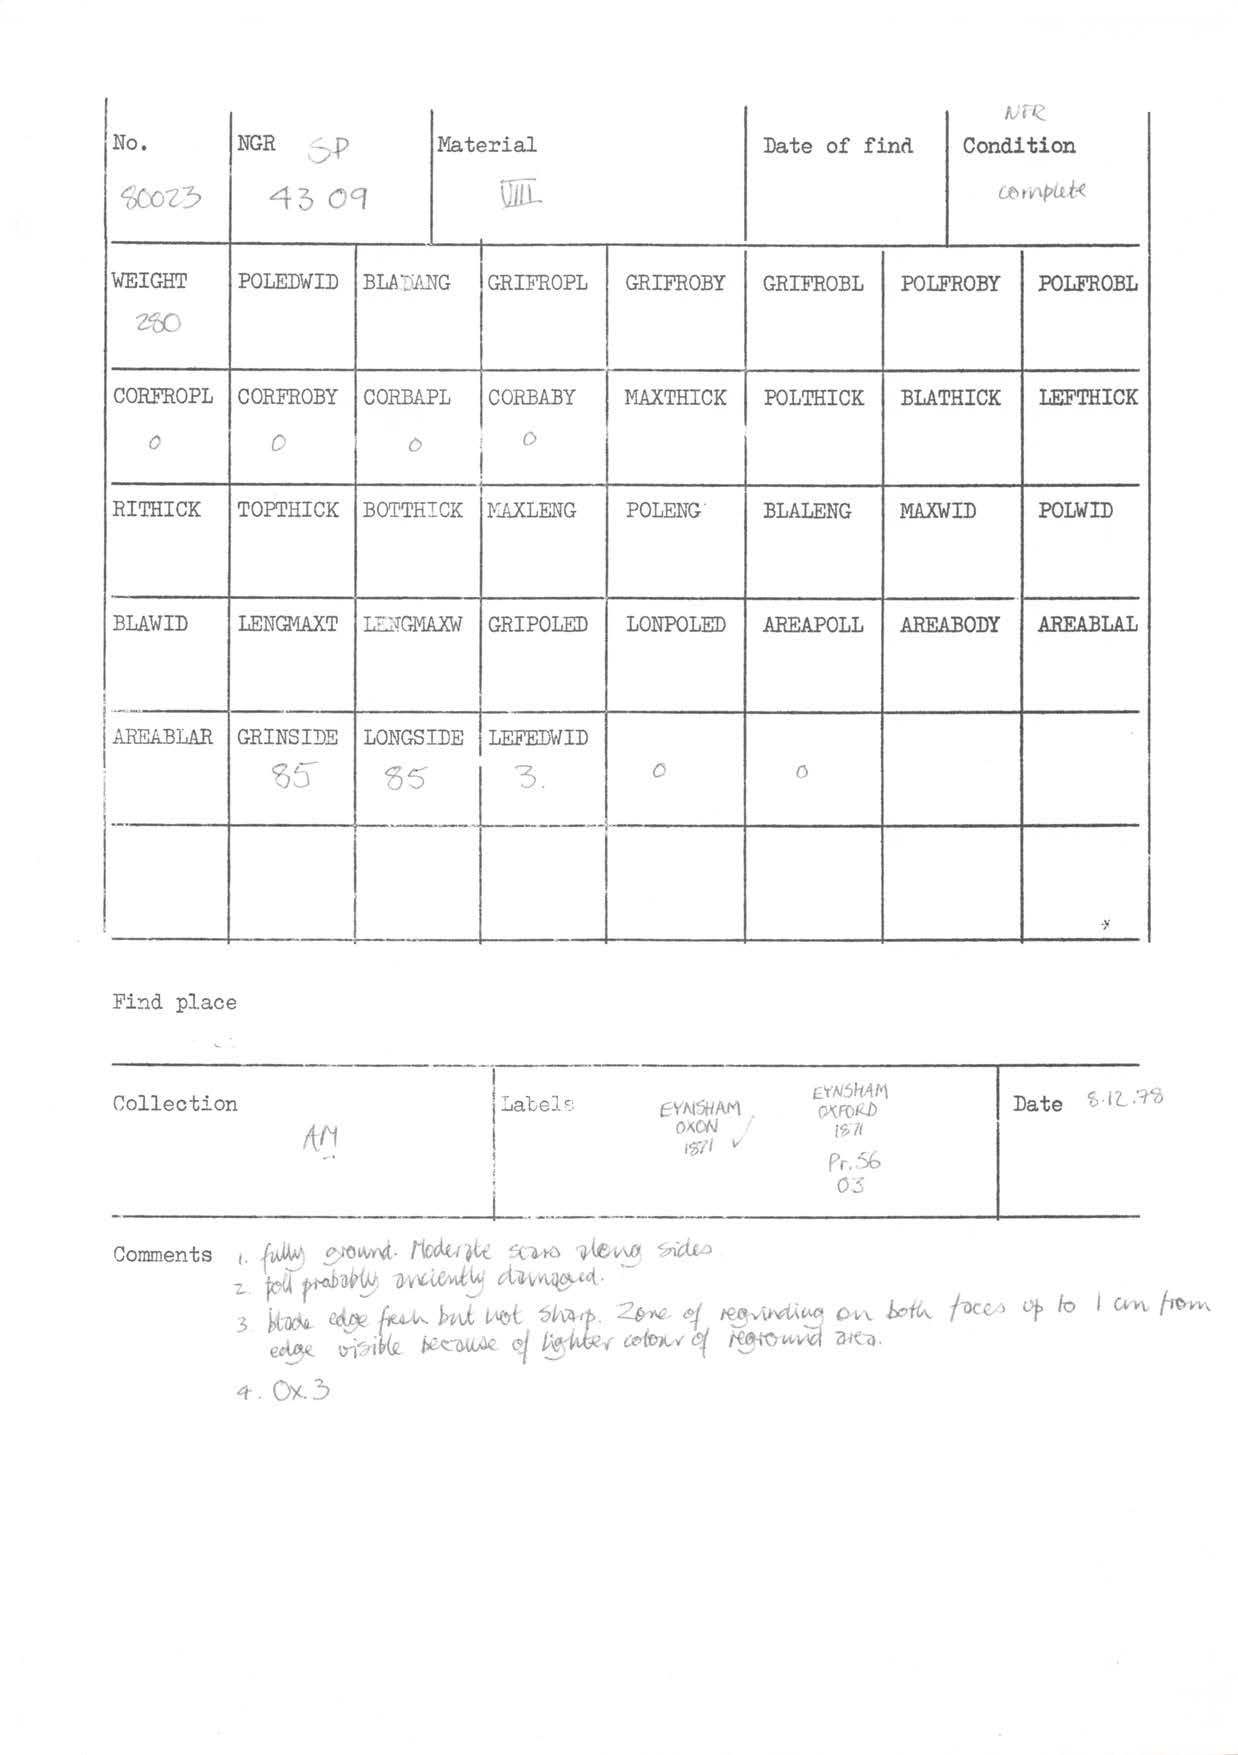 NFR
No. NGR SP Material Date of find Condition
80023 43 09 VIII complete
WEIGHT POLEDWID BLADANG GRIFROPL GRIFROBY GRIFROBL POLFROBY POLFROBL
280
CORFROPL CORFROBY CORBAPL CORBABY MAXTHICK POLTHICK BLATHICK LEFTHICK
0 0 0 0
RITHICK TOPTHICK BOTTHICK MAXLENG POLENG BLALENG MAXWID POLWID
BLAWID LENGMAXT LENGMAXW GRIPOLED LONPOLED AREAPOLL AREABODY AREABLAL
AREABLAR GRINSIDE LONGSIDE LEFEDWID
85 85 3. 0 0
Find place
Collection
AM
Labels
EYNSHAM
OXON
1871 ✓
EYNSHAM
OXFORD
1871
Pr.56
03
Date 8.12.78
Comments 1. fully ground. Moderate scars along sides
2. poll probably anciently damaged.
3 blade edge fresh but not sharp. Zone of regrinding on both faces up to 1 cm from
edge visible because of lighter colour of reground area.
4. Ox.3